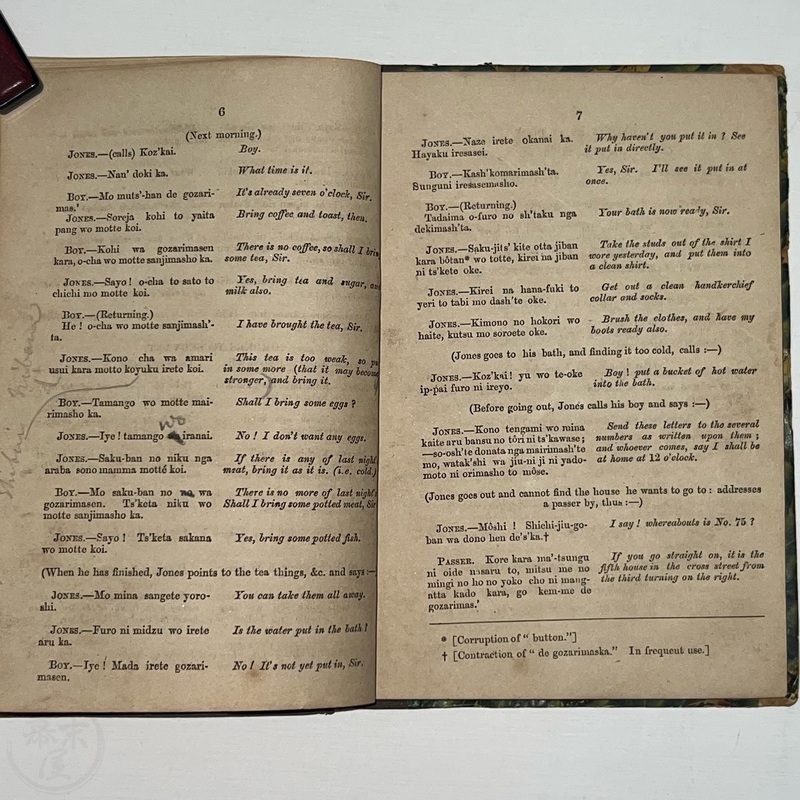 6
(Next morning.)
JONES.—(calls) Koz'kai.
Boy.
JONES.—Nan' doki ka.
What time is it.
BOY.—Mo muts'-han de gozari-
mas.'
It's already seven o'clock, Sir.
JONES.—Soreja kohi to yaita
pang wo motte koi.
Bring coffee and toast, then.
BOY.—Kohi wa gozarimasen
kara, o-cha wo motte sanjimasho ka.
There is no coffee, so shall I
some tea, Sir.
JONES.—Sayo! o-cha to sato to
chichi mo motte koi.
Yes, bring tea and sugar,
milk also.
BOY.—(Returning.)
He! o-cha wo motte sanjimash'-
ta.
I have brought the tea, Sir.
JONES.—Kono cha wa amari
usui kara motto koyuku irete koi.
This tea is too weak, so
in some more (that it may become
stronger, and bring it.
BOY.—Tamango wo motte mai-
rimasho ka.
Shall I bring some eggs?
wo
JONES.—Iye! tamango iranai.
No! I don't want any eggs.
JONES.—Saku-ban no niku nga
araba sono mamma motté koi.
If there is any of last night
meat, bring it as it is. (i.e. cold)
BOY.—Mo saku-ban no wa
gozarimasen. Ts'keta niku wo
motte sanjimasho ka.
There is no more of last night's
Shall I bring some potted meat, Sir
JONES.—Sayo! Ts'keta sakana
wo motte koi.
Yes, bring some potted fish.
(When he has finished, Jones points to the tea things, &c. and says:—)
JONES.—Mo mina sangete yoro-
shi.
You can take them all away.
JONES.—Furo ni midzu wo irete
aru ka.
Is the water put in the bath?
BOY.—Iye! Mada irete gozari-
masen.
No! It's not yet put in, Sir.
7
JONES.—Naze irete okanai ka.
Hayaku iresasei.
Why haven't you put it in? See
it put in directly.
BOY.—Kash'komarimash'ta.
Sunguni iresasemasho.
Yes, Sir. I'll see it put in at
once.
BOY.—(Returning.)
Tadaima o-furo no sh'taku nga
dekimash'ta.
Your bath is now ready, Sir.
JONES.—Saku-jits' kite otta jiban
kara bôtan* wo totte, kirei na jiban
ni ts'kete oke.
Take the studs out of the shirt I
wore yesterday, and put them into
a clean shirt.
JONES.—Kirei na hana-fuki to
yeri to tabi mo dash'te oke.
Get out a clean handkerchief
collar and socks.
JONES.—Kimono no hokori wo
haite, kutsu mo soroete oke.
Brush the clothes, and have my
boots ready also.
(Jones goes to his bath, and finding it too cold, calls :—)
JONES.—Koz'kai! yu wo te-oke
ip-pai furo ni ireyo.
Boy! put a bucket of hot water
into the bath.
(Before going out, Jones calls his boy and says :—)
JONES.—Kono tengami wo mina
kaite aru bansu no tôri ni ts'kawase;
—so-osh'te donata nga mairimash'te
mo, watak'shi wa jiu-ni ji ni yado-
moto ni orimasho to môse.
Send these letters to the several
numbers as written upon them;
and whoever comes, say I shall be
at home at 12 o'clock.
(Jones goes out and cannot find the house he wants to go to : addresses
a passer by, thus :—)
JONES.—Môshi! Shichi-jiu-go-
ban wa dono hen de's'ka.†
I say! whereabouts is No. 75?
PASSER. Kore kara ma'-tsungu
ni oide nasaru to, mitsu me no
mingi no ho no yoko cho ni mang-
atta kado kara, go kem-me de
gozarimas.'
If you go straight on, it is the
fifth house in the cross street from
the third turning on the right.
* [Corruption of "button."]
† [Contraction of "de gozarimaska." In frequent use.]